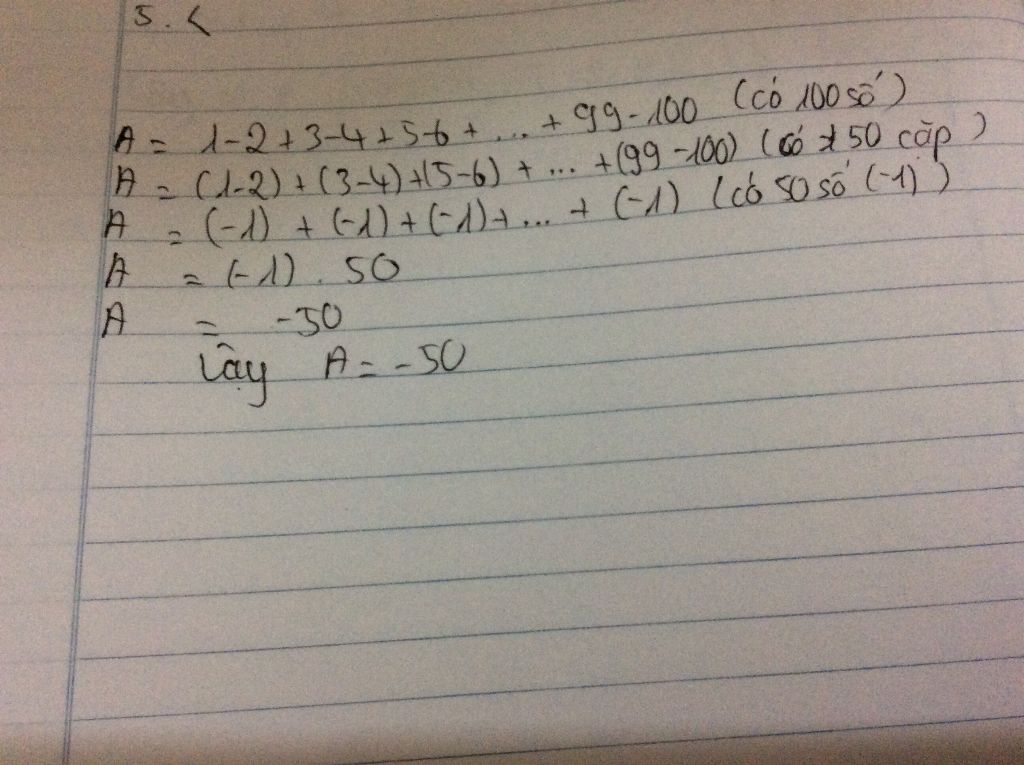 5. <
A = 1-2+3-4+5-6+...+99-100 (có 100 số)
A = (1-2)+(3-4)+(5-6)+...+(99-100) (có 50 cặp)
A = (-1)+(-1)+(-1)+...+(-1) (có 50 số (-1))
A = (-1). 50
A = -50
Vậy A = -50